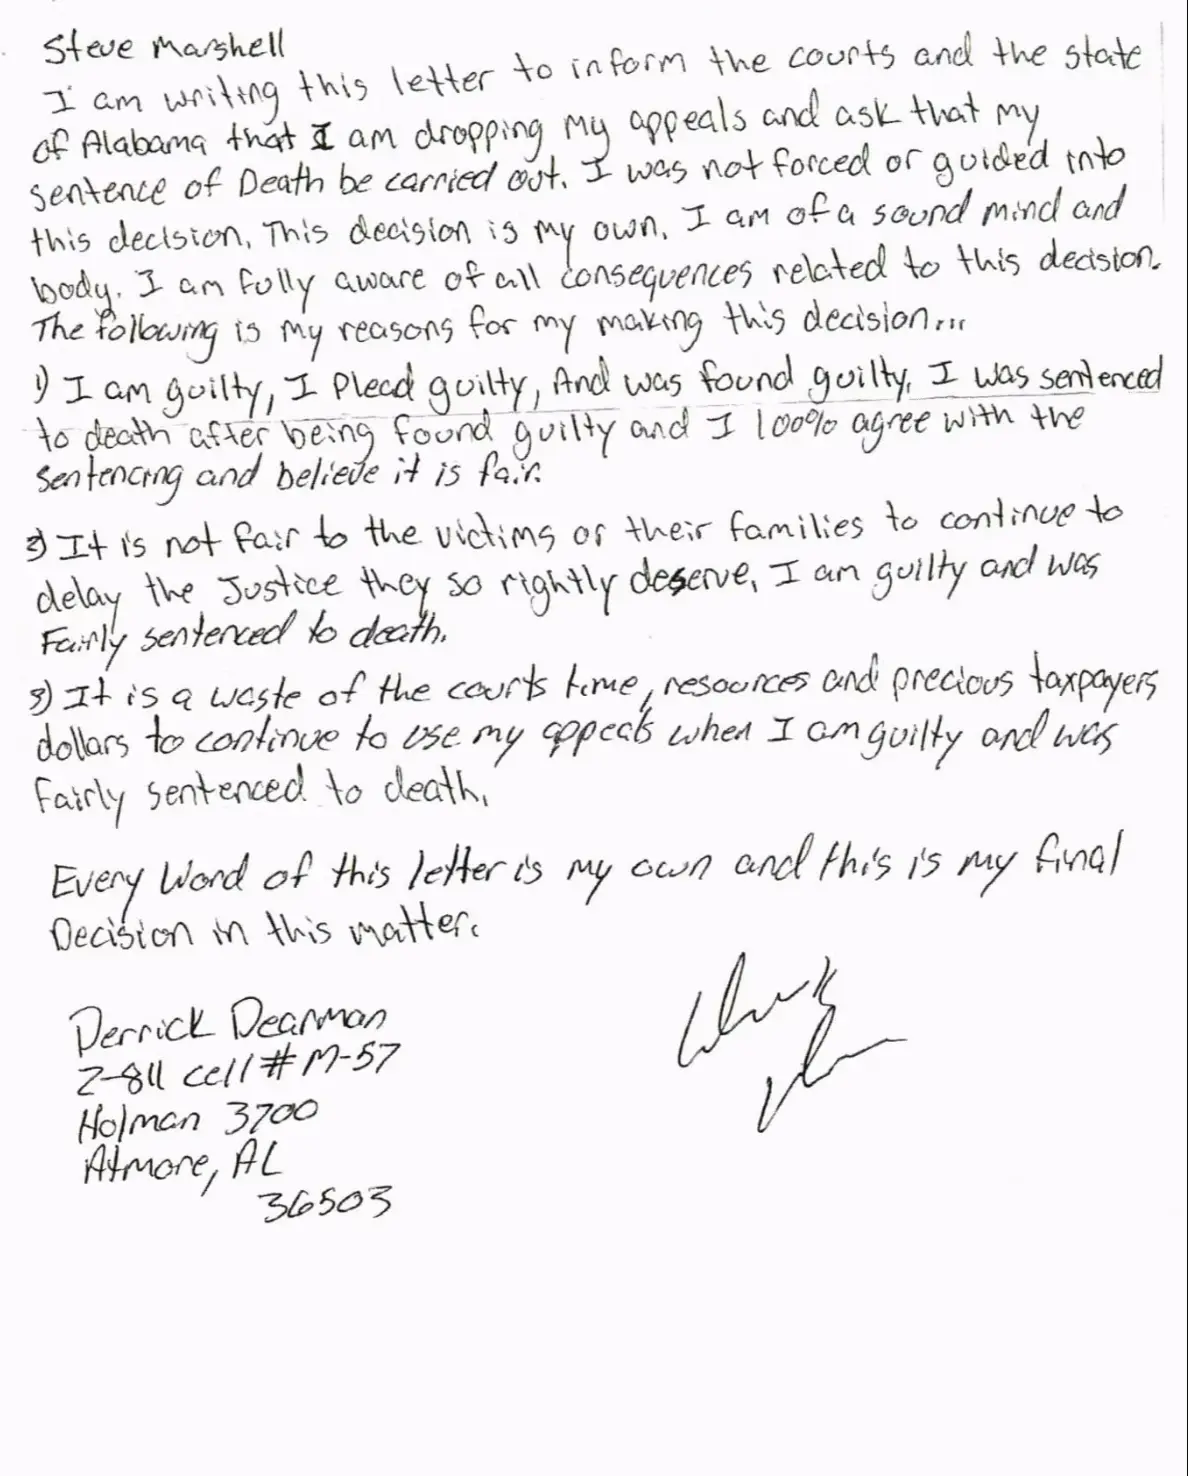 Steve Marshell
I am writing this letter to inform the courts and the state
of Alabama that I am dropping my appeals and ask that my
sentence of Death be carried out. I was not forced or guided into
this decision. This decision is my own. I am of a sound mind and
body. I am fully aware of all consequences related to this decision.
The following is my reasons for my making this decision...
1) I am guilty, I Plead guilty, And was found guilty. I was sentenced
to death after being found guilty and I 100% agree with the
sentencing and believe it is fair.
2) It is not fair to the victims or their families to continue to
delay the Justice they so rightly deserve. I am guilty and was
Fairly sentenced to death.
3) It is a waste of the courts time, resources and precious taxpayers
dollars to continue to use my appeals when I am guilty and was
fairly sentenced to death.
Every Word of this letter is my own and this is my final
Decision in this matter.
Derrick Dearman
Z-811 cell # M-57
Holman 3700
Atmore, AL
36503